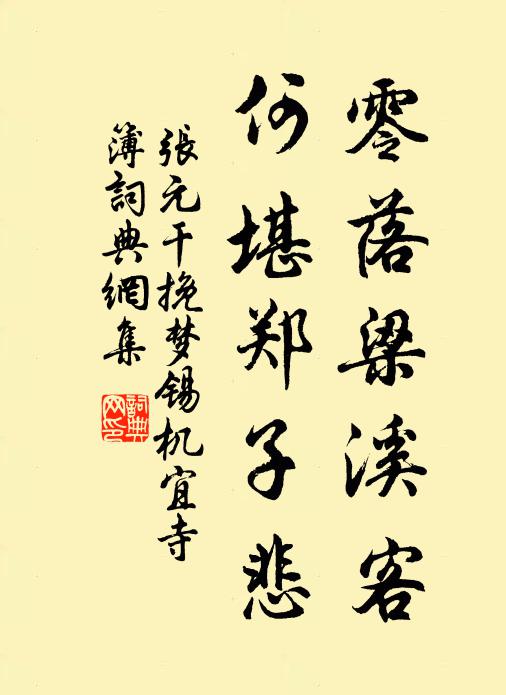 零落梁溪客
何堪郑子悲
張元干挽梦锡机宜寺
簿詞典網集
詞典
网印